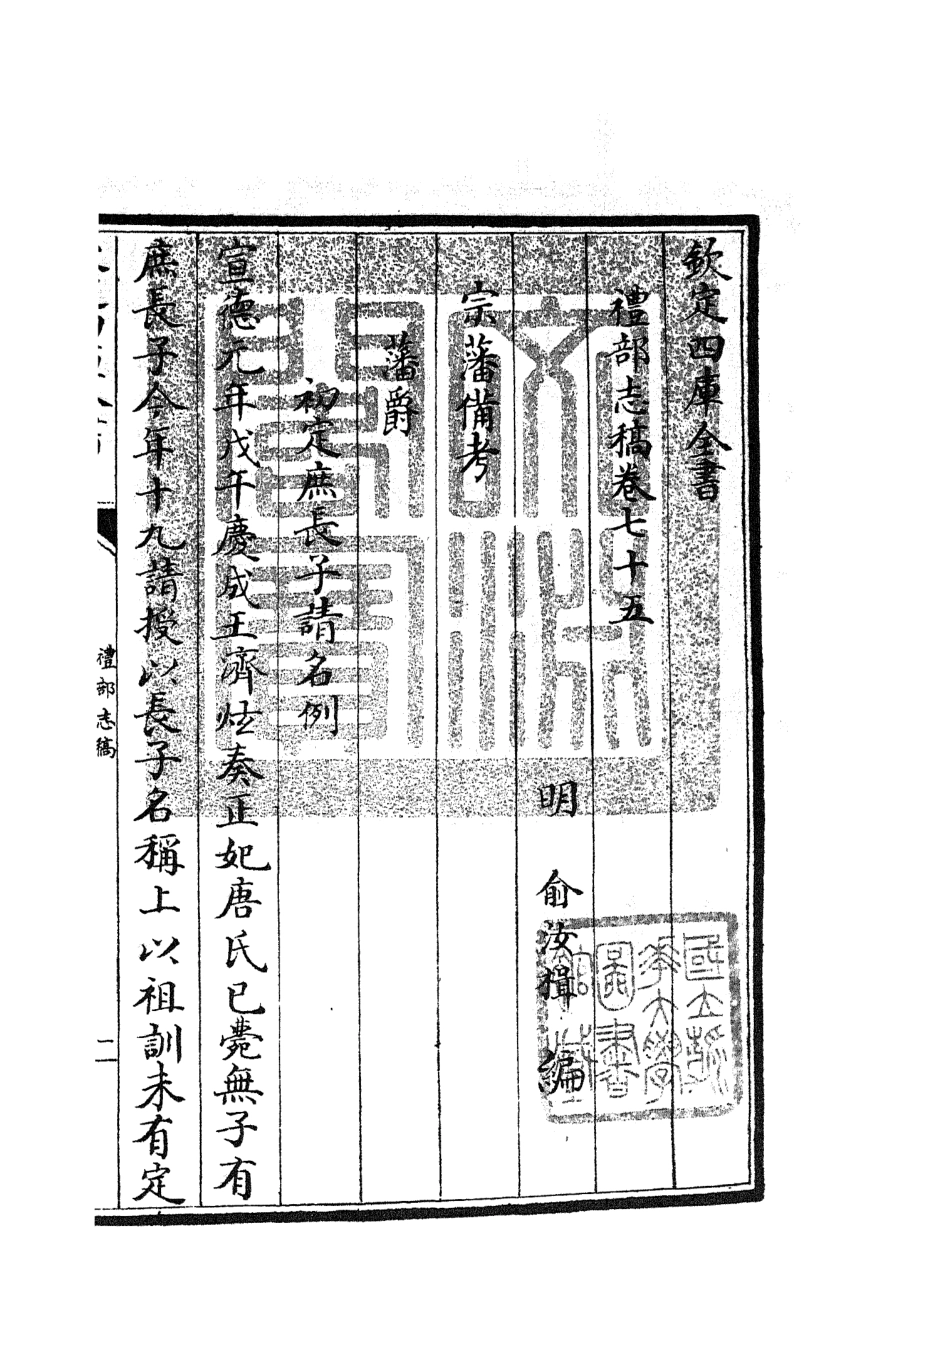 欽定四庫全書
禮部志稿卷七十五
明 俞汝楫 編
宗藩備考
藩爵
初定庶長子請名例
宣德元年戊午慶成王濟炫奏正妃唐氏已薨無子有
庶長子今年十九請授以長子名稱上以祖訓未有定
禮部志稿
二